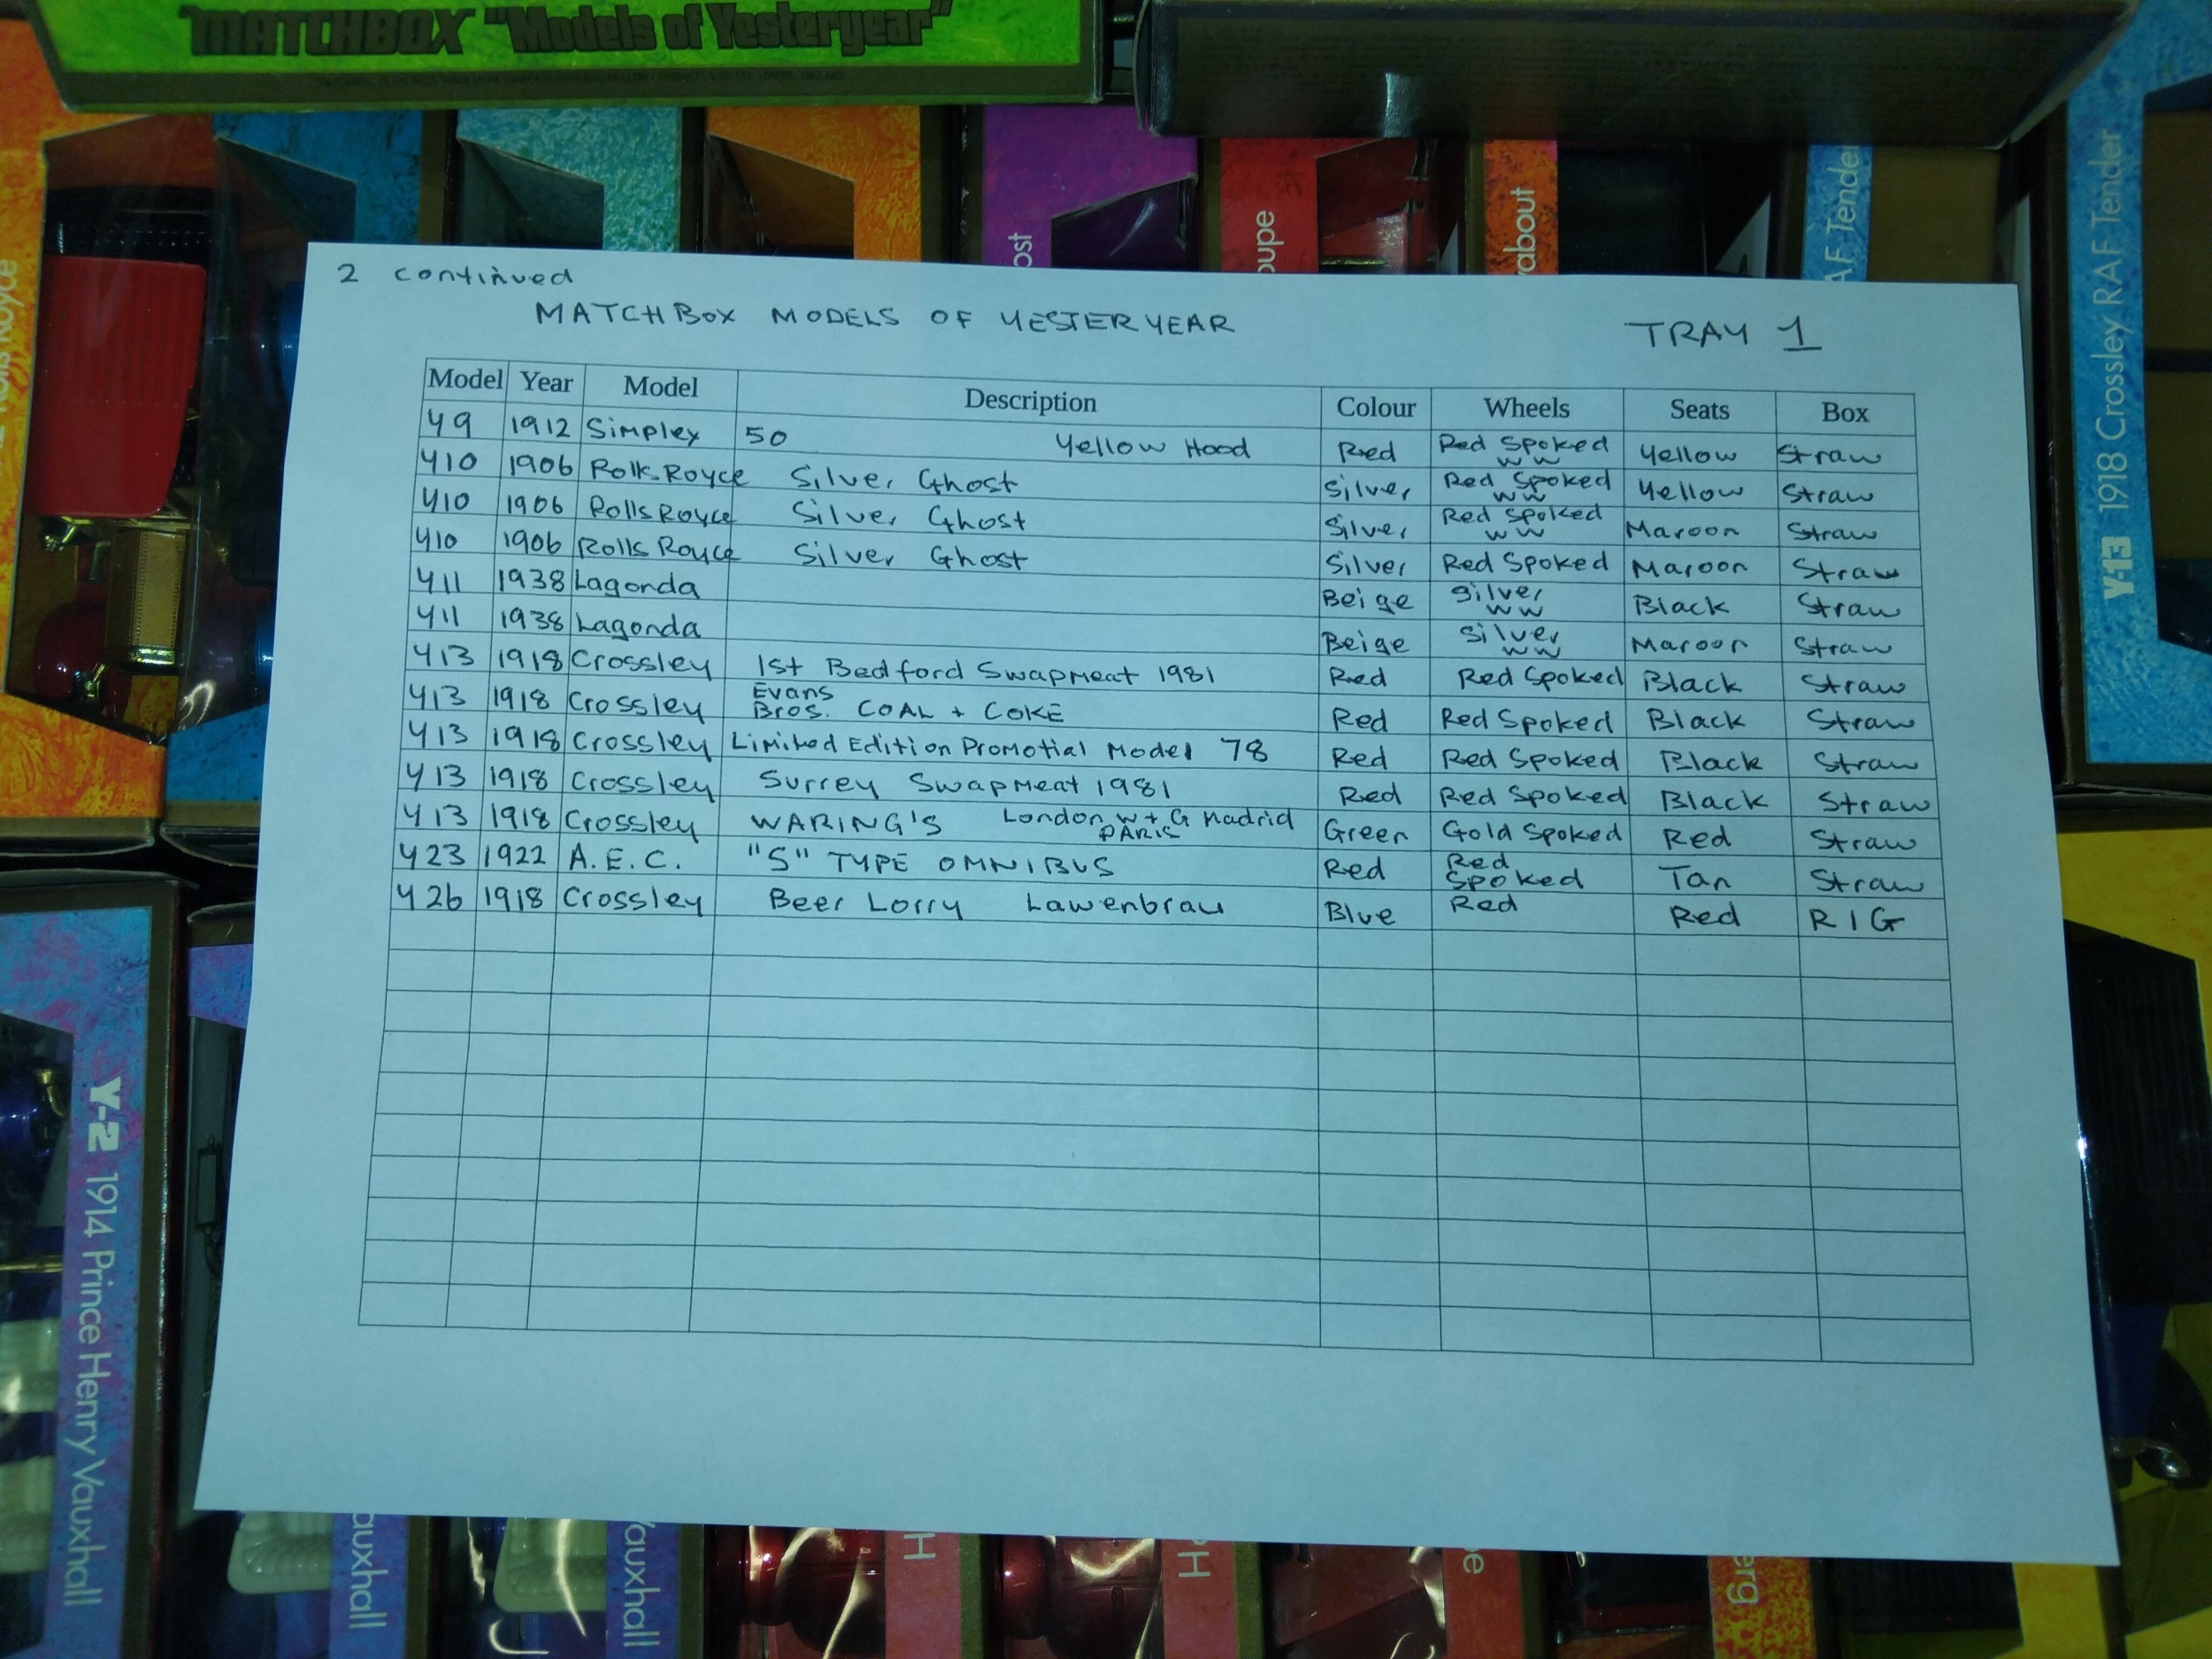 MATCHBOX "Models of Yesteryear"
Rolls Royce
ost
oupe
about
AF Tender
Y-13 1918 Crossley RAF Tender
2 continued
MATCHBOX MODELS OF YESTERYEAR TRAY 1
Model Year Model Description Colour Wheels Seats Box
Y9 1912 Simplex 50 Yellow Hood Red Red Spoked WW Yellow Straw
Y10 1906 Rolls-Royce Silver Ghost Silver Red Spoked WW Yellow Straw
Y10 1906 Rolls Royce Silver Ghost Silver Red Spoked WW Maroon Straw
Y10 1906 Rolls Royce Silver Ghost Silver Red Spoked Maroon Straw
Y11 1938 Lagonda Beige Silver WW Black Straw
Y11 1938 Lagonda Beige Silver WW Maroon Straw
Y13 1918 Crossley 1st Bedford Swapmeat 1981 Red Red Spoked Black Straw
Y13 1918 Crossley Evans Bros. COAL + COKE Red Red Spoked Black Straw
Y13 1918 Crossley Limited Edition Promotial Model '78 Red Red Spoked Black Straw
Y13 1918 Crossley Surrey Swapmeat 1981 Red Red Spoked Black Straw
Y13 1918 Crossley WARING'S London W+G Madrid PARIS Green Gold Spoked Red Straw
Y23 1922 A.E.C. "S" TYPE OMNIBUS Red Red Spoked Tan Straw
Y26 1918 Crossley Beer Lorry Lawenbrau Blue Red Red RIG
Y-2 1914 Prince Henry Vauxhall
auxhall
auxhall
H
PH
pe
erg